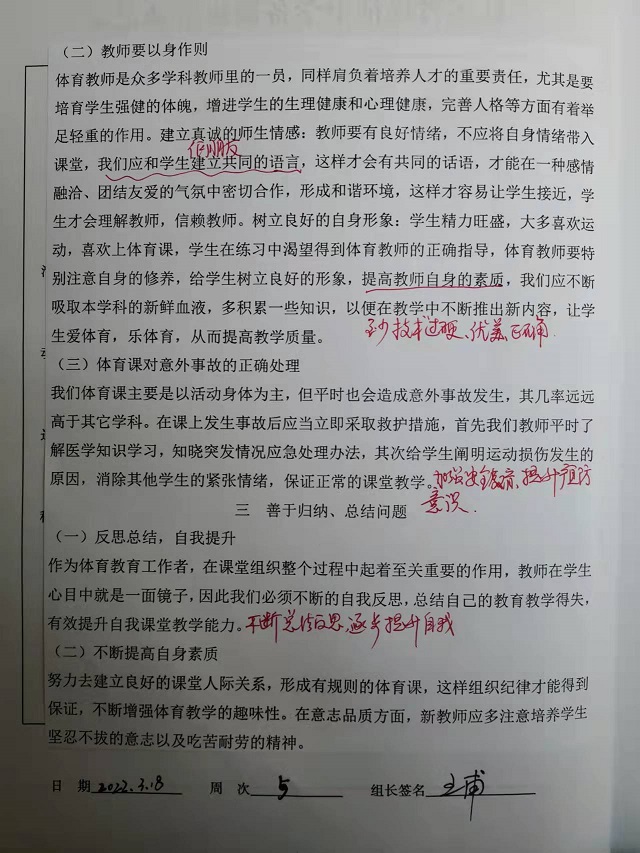 （二）教师要以身作则
体育教师是众多学科教师里的一员，同样肩负着培养人才的重要责任，尤其是要
培育学生强健的体魄，增进学生的生理健康和心理健康，完善人格等方面有着举
足轻重的作用。建立真诚的师生情感：教师要有良好情绪，不应将自身情绪带入
课堂，我们应和学生建立共同的语言，这样才会有共同的话语，才能在一种感情
融洽、团结友爱的气氛中密切合作，形成和谐环境，这样才容易让学生接近，学
生才会理解教师，信赖教师。树立良好的自身形象：学生精力旺盛，大多喜欢运
动，喜欢上体育课，学生在练习中渴望得到体育教师的正确指导，体育教师要特
别注意自身的修养，给学生树立良好的形象，提高教师自身的素质，我们应不断
吸取本学科的新鲜血液，多积累一些知识，以便在教学中不断推出新内容，让学
生爱体育，乐体育，从而提高教学质量。
至少技术过硬、优美正确
（三）体育课对意外事故的正确处理
我们体育课主要是以活动身体为主，但平时也会造成意外事故发生，其几率远远
高于其它学科。在课上发生事故后应当立即采取救护措施，首先我们教师平时了
解医学知识学习，知晓突发情况应急处理办法，其次给学生阐明运动损伤发生的
原因，消除其他学生的紧张情绪，保证正常的课堂教学。加强安全教育、提升预防
意识.
三 善于归纳、总结问题
（一）反思总结，自我提升
作为体育教育工作者，在课堂组织整个过程中起着至关重要的作用，教师在学生
心目中就是一面镜子，因此我们必须不断的自我反思，总结自己的教育教学得失，
有效提升自我课堂教学能力。不断总结反思，逐步提升自我
（二）不断提高自身素质
努力去建立良好的课堂人际关系，形成有规则的体育课，这样组织纪律才能得到
保证，不断增强体育教学的趣味性。在意志品质方面，新教师应多注意培养学生
坚忍不拔的意志以及吃苦耐劳的精神。
日 期 2022.3.18 周 次 5 组长签名 王甫